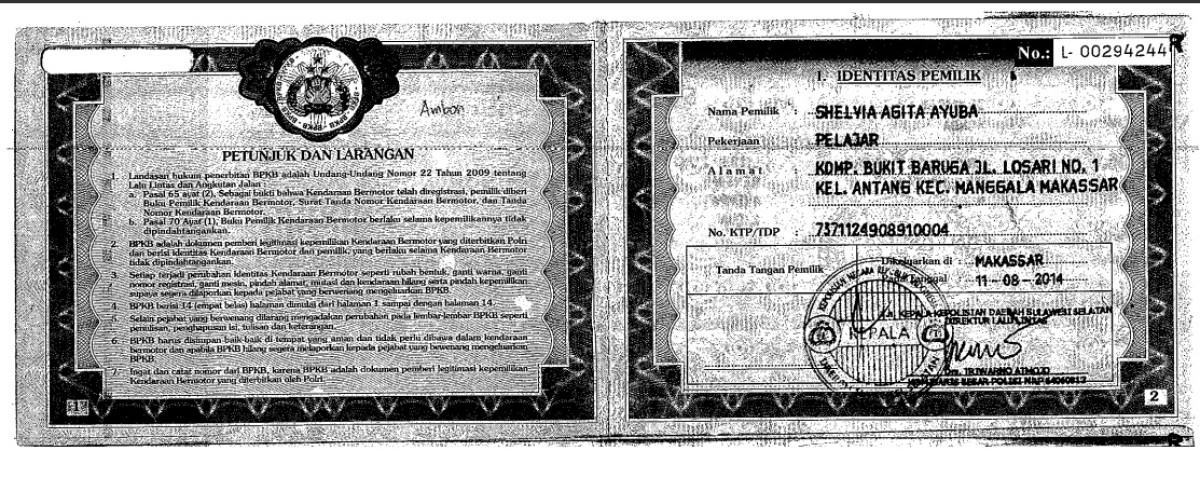 Ambon
PETUNJUK DAN LARANGAN
1. Landasan hukum penerbitan BPKB adalah Undang-Undang Nomor 22 Tahun 2009 tentang
Lalu Lintas dan Angkutan Jalan :
a. Pasal 65 ayat (2), Sebagai bukti bahwa Kendaraan Bermotor telah diregistrasi, pemilik diberi
Buku Pemilik Kendaraan Bermotor, Surat Tanda Nomor Kendaraan Bermotor, dan Tanda
Nomor Kendaraan Bermotor.
b. Pasal 70 Ayat (1), Buku Pemilik Kendaraan Bermotor berlaku selama kepemilikannya tidak
dipindahtangankan.
2. BPKB adalah dokumen pemberi legitimasi kepemilikan Kendaraan Bermotor yang diterbitkan Polri
dan berisi identitas Kendaraan Bermotor dan pemilik, yang berlaku selama Kendaraan Bermotor
tidak dipindahtangankan.
3. Setiap terjadi perubahan identitas Kendaraan Bermotor seperti rubah bentuk, ganti warna, ganti
nomor registrasi, ganti mesin, pindah alamat, mutasi dan kendaraan hilang serta pindah kepemilikan
supaya segera dilaporkan kepada pejabat yang berwenang mengeluarkan BPKB.
4. BPKB berisi 14 (empat belas) halaman dimulai dari halaman 1 sampai dengan halaman 14.
5. Selain pejabat yang berwenang dilarang mengadakan perubahan pada lembar-lembar BPKB seperti
penulisan, penghapusan isi, tulisan dan keterangan.
6. BPKB harus disimpan baik-baik di tempat yang aman dan tidak perlu dibawa dalam kendaraan
bermotor dan apabila BPKB hilang segera melaporkan kepada pejabat yang berwenang mengeluarkan
BPKB.
7. Ingat dan catat nomor dari BPKB, karena BPKB adalah dokumen pemberi legitimasi kepemilikan
Kendaraan Bermotor yang diterbitkan oleh Polri.
No.: L- 00294244
I. IDENTITAS PEMILIK
Nama Pemilik : SHELVIA AGITA AYUBA
Pekerjaan : PELAJAR
Alamat : KOMP. BUKIT BARUGA JL. LOSARI NO. 1
KEL. ANTANG KEC. MANGGALA MAKASSAR
No. KTP/TDP : 7371124908910004
Tanda Tangan Pemilik
Dikeluarkan di : MAKASSAR
Tanggal 11-08-2014
KEPALA KEPOLISIAN DAERAH SULAWESI SELATAN
DIREKTUR LALU LINTAS
KEPALA
Drs. TRIWARNO ATMOJO
KOMISARIS BESAR POLISI NRP
2